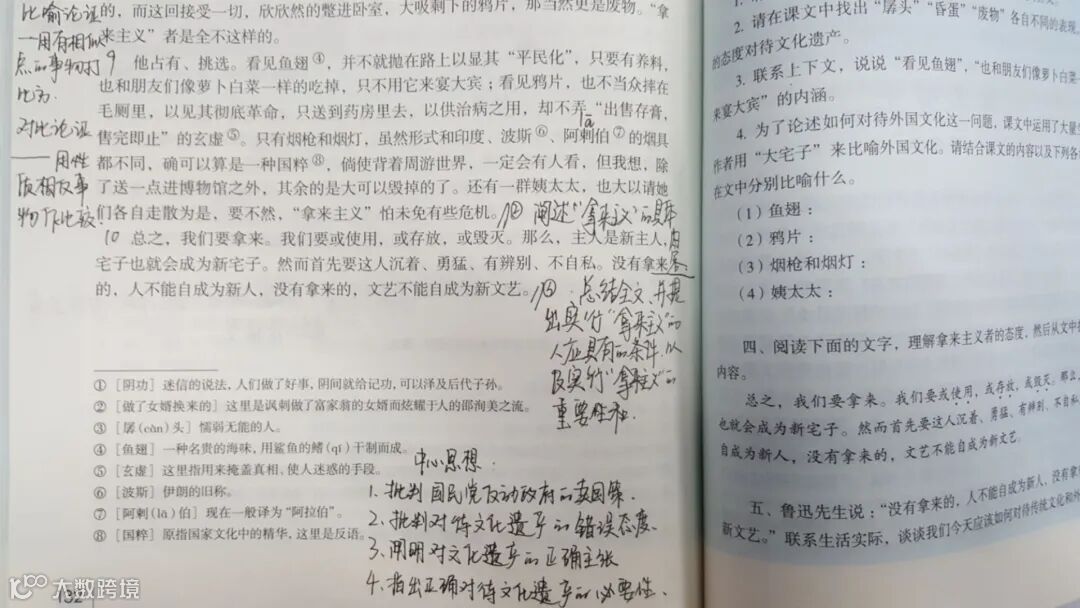 的，而这回接受一切，欣欣然的蹩进卧室，大吸剩下的鸦片，那当然更是废物。“拿
来主义”者是全不这样的。
9 他占有、挑选。看见鱼翅④，并不就抛在路上以显其“平民化”，只要有养料，
也和朋友们像萝卜白菜一样的吃掉，只不用它来宴大宾；看见鸦片，也不当众摔在
毛厕里，以见其彻底革命，只送到药房里去，以供治病之用，却不弄“出售存膏，
售完即止”的玄虚⑤。只有烟枪和烟灯，虽然形式和印度、波斯⑥、阿剌伯⑦的烟具
lā
都不同，确可以算是一种国粹⑧，倘使背着周游世界，一定会有人看，但我想，除
了送一点进博物馆之外，其余的是大可以毁掉的了。还有一群姨太太，也大以请她
们各自走散为是，要不然，“拿来主义”怕未免有些危机。
10 总之，我们要拿来。我们要或使用，或存放，或毁灭。那么，主人是新主人，
宅子也就会成为新宅子。然而首先要这人沉着、勇猛、有辨别、不自私。没有拿来
的，人不能自成为新人，没有拿来的，文艺不能自成为新文艺。
比喻论证
—用有相似
点的事物打
比方
对比论证
——用性
质相反事
物作比较
阐述“拿来主义”的具体
内容
总结全文，并提
出实行“拿来主义”的
人应具有的条件，以
及实行“拿来主义”的
重要性和
① [阴功] 迷信的说法，人们做了好事，阴间就给记功，可以泽及后代子孙。
② [做了女婿换来的] 这里是讽刺做了富家翁的女婿而炫耀于人的邵洵美之流。
③ [孱（càn）头] 懦弱无能的人。
④ [鱼翅] 一种名贵的海味，用鲨鱼的鳍（qí）干制而成。
⑤ [玄虚] 这里指用来掩盖真相、使人迷惑的手段。
⑥ [波斯] 伊朗的旧称。
⑦ [阿剌（lā）伯] 现在一般译为“阿拉伯”。
⑧ [国粹] 原指国家文化中的精华，这里是反语。
中心思想
1. 批判国民党反动政府的卖国策
2. 批判对待文化遗产的错误态度
3. 阐明对文化遗产的正确主张
4. 指出正确对待文化遗产的必要性
132
大数跨境
2. 请在课文中找出“孱头”“昏蛋”“废物”各自不同的表现
的态度对待文化遗产。
3. 联系上下文，说说“看见鱼翅”，“也和朋友们像萝卜白菜
来宴大宾”的内涵。
4. 为了论述如何对待外国文化这一问题，课文中运用了大量
作者用“大宅子”来比喻外国文化。请结合课文的内容以及下列各
在文中分别比喻什么。
（1）鱼翅：
（2）鸦片：
（3）烟枪和烟灯：
（4）姨太太：
四、阅读下面的文字，理解拿来主义者的态度，然后从文中
内容。
总之，我们要拿来。我们要或使用，或存放，或毁灭。那么，
也就会成为新宅子。然而首先要这人沉着、勇猛、有辨别、不自私
自成为新人，没有拿来的，文艺不能自成为新文艺。
五、鲁迅先生说：“没有拿来的，人不能自成为新人，没有拿
新文艺。”联系生活实际，谈谈我们今天应该如何对待传统文化和外